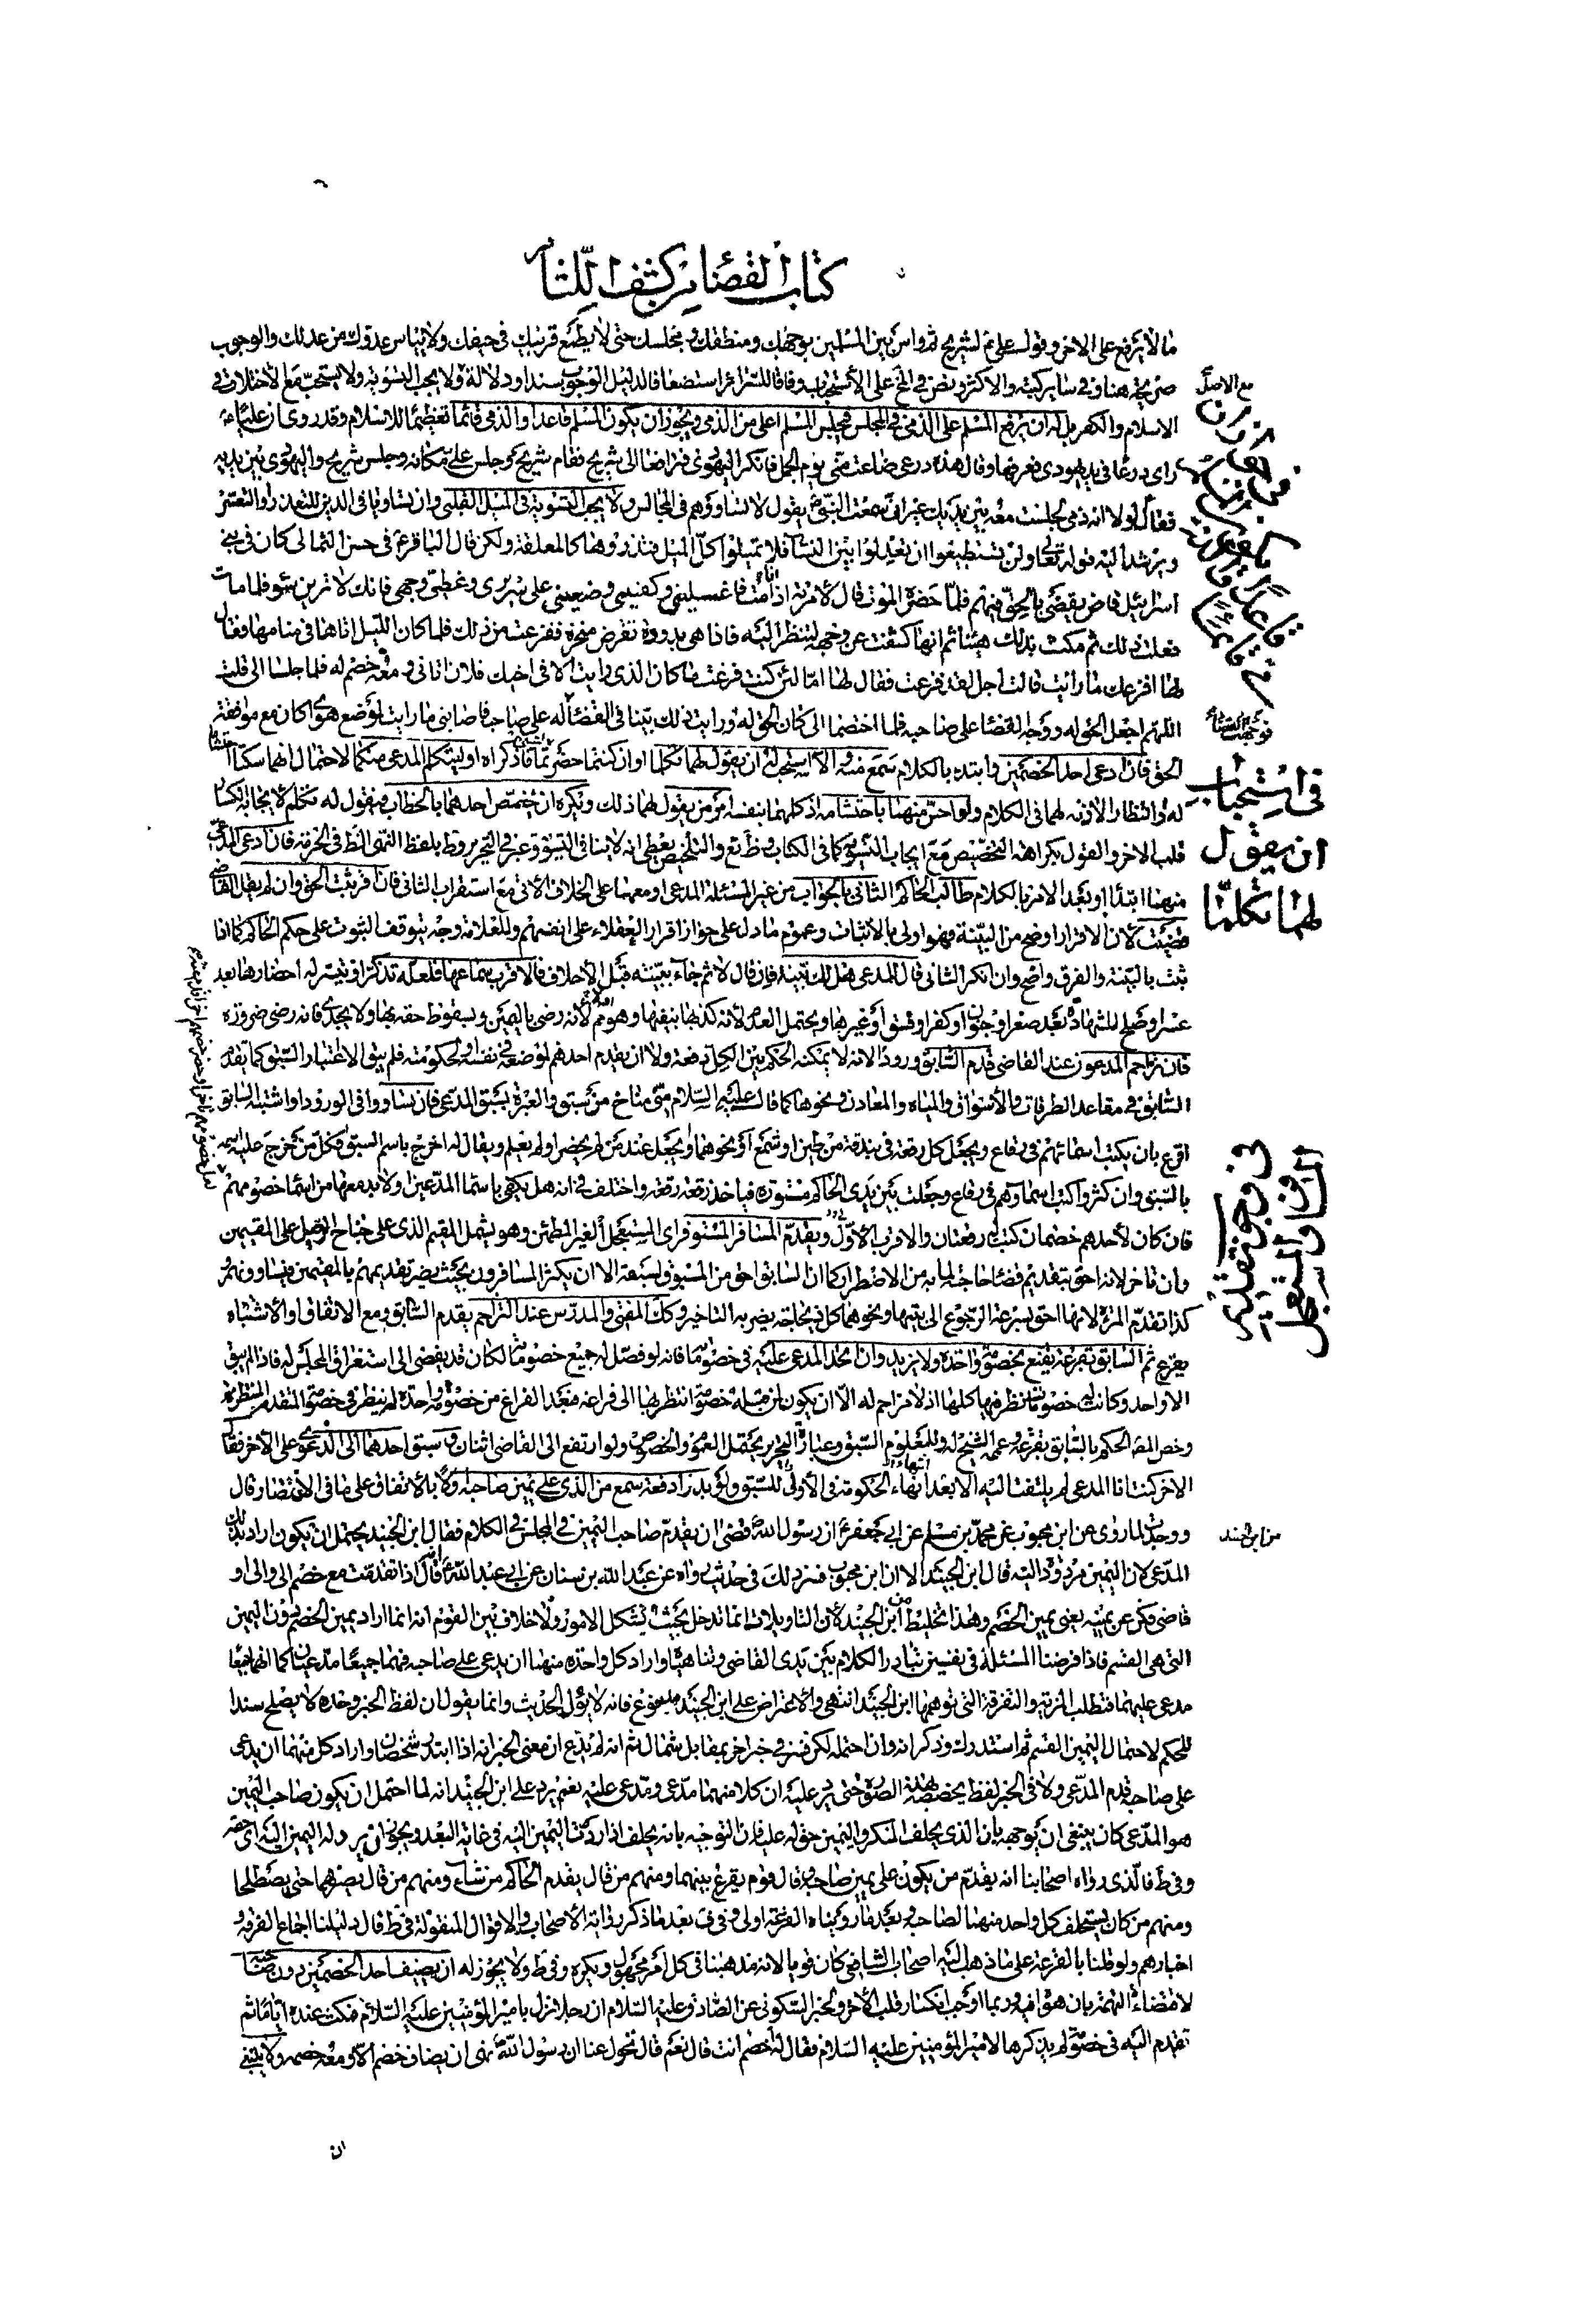 كتاب القضاء من كشف اللثام
ما لا يرفع على الاخر وقول على ع لشريح ثم واس بين المسلمين بوجهك ومنطقك ومجلسك حتى لا يطمع قريبك في حيفك ولا ييأس عدوك من عدلك والوجوب
صريحه هنا وفي ساير كتبه والاكثر ونص في المخ على الاستحباب وفاقا للسرائر استضعافا لدليل الوجوب سندا ودلالة ولا يجب التسوية ولا يستحب مع الاختلاف في
الاسلام والكفر بل له ان يرفع المسلم على الذمي في المجلس فيجلس المسلم اعلى من الذمي ويجوز ان يكون المسلم قاعدا والذمي قائما تعظيما للاسلام وقد روى ان عليا ع
راى درعا في يد يهودى فعرفها وقال هذه درعى ضاعت منى يوم الجمل فانكر اليهودى فترافعا الى شريح فقام شريح وجلس على ع مكانه وجلس شريح واليهودى بين يديه
فقال لولا انه ذمى لجلست معه بين يديك غير انى سمعت النبى ص يقول لا تساووهم في المجالس ولا يجب التسوية في الميل القلبى وان تساويا في الدين للتعذر او التعسر
ويرشد اليه قوله تعالى ولن تستطيعوا ان تعدلوا بين النساء فلا تميلوا كل الميل فتذروها كالمعلقة ولكن قال الباقر ع في حسن الثمالى كان في بنى
اسرائيل قاض يقضى بالحق فيهم فلما حضره الموت قال لامرته اذا انا مت فاغسلينى وكفنينى وضعينى على سريرى وغطى وجهى فانك لا ترين سوء فلما مات
فعلت ذلك ثم مكثت بذلك هنيئا ثم انها كشفت عن وجهه لتنظر اليه فاذا هى بدودة تقرض منخره ففزعت من ذلك فلما كان الليل اتاها في منامها فقال
لها افزعك ما رايت قالت اجل لقد فزعت فقال لها اما لئن كنت فزعت ما كان الذى رايت الا في اخيك فلان اتانى ومعه خصم له فلما جلسا الى قلت
اللهم اجعل الحق له ووجه القضاء على صاحبه فلما اختصما الى كان الحق له ورايت ذلك بينا في القضاء له على صاحبه فاصابنى ما رايت لموضع هواى كان مع موافقة
الحق فان ادعى احد الخصمين وابتدء بالكلام سمع منه والا استحب له ان يقول لهما تكلما او ان كنتما حضرتما لشئ فاذكراه او ليتكلم المدعى منكما لاحتمال انهما سكتا احتشاما
له وانتظارا لاذنه لهما في الكلام ولو احس منهما باحتشامه اذ كلمهما بنفسه امر من يقول لهما ذلك ويكره ان يخصص احدهما بالخطاب فيقول له تكلم لايجابه انكسار
قلب الاخر والقول بكراهة التخصيص مع ايجاب التسوية كما في الكتاب وظ يع والتلخيص يعطى انه لا ينافى التسوية وعبر في التحرير وط بلفظ النهى الظ في الحرمة فان ادعى المدعى
منهما ابتداء او بعد الامر بالكلام طالب الحاكم الثانى بالجواب من غير المسئلة المدعى او معها على الخلاف الاتى مع استقراب الثانى فان اقر ثبت الحق وان لم يقل القاضى
قضيت لان الاقرار اوضح من البينة فهو اولى بالاثبات وعموم ما دل على جواز اقرار العقلاء على انفسهم وللعلامة وجه بتوقف الثبوت على حكم الحاكم كما اذا
ثبت بالبينة والفرق واضح وان انكر الثانى قال للمدعى هل لك بينة فان قال لا ثم جاء ببينته قبل الاحلاف فالاقرب سماعها فلعله تذكر او تيسر له احضارها بعد
عسر او صلح للشهادة بعد صغر او جنون او كفر او فسق او غيرها ويحتمل العدم لانه كذبها بنفيها وهو مم ولانه رضى باليمين وبسقوط حقه بها ولا يجدى فانه رضى ضرورة
فان تزاحم المدعون عند القاضى قدم السابق ورودا لانه لا يمكنه الحكم بين الكل دفعة ولا ان يقدم احدهم لوضعه في نفسه او لحكومته فلم يبق الا اعتبار السبق كما تقدم
السابق في مقاعد الطرقات والاسواق والمياه والمعادن ونحوها كما قال عليه السلام منى مناخ من سبق والعبرة بسبق المدعى فان تساووا في الورود او اشتبه السابق
اقرع بان يكتب اسمائهم في رقاع ويجعل كل رقعة في بندقة من طين او شمع او نحوهما ويجعل عند من لم يحضر او لم يعلم ويقال له اخرج باسم السبق فكل من خرج عليه اسمه
بالسبق وان كثروا كتب اسماؤهم في رقاع وجعلت بين يدى الحاكم مستورة فياخذ رقعة رقعة واختلف في انه هل يكفى باسماء المدعين او لا بد معها من اسماء خصومهم
فان كان لاحدهم خصمان كتب له رقعتان والاقرب الاول ويقدم المسافر المستوفز اى المستعجل الغير المطمئن وهو يشمل المقيم الذى على جناح الرحيل على المقيمين
وان تاخر لانه احق بتقديم قضاء حاجته لما به من الاضطرار كما ان السابق احق من المسبوق لسبقه الا ان يكثر المسافرون بحيث يضر تقديمهم بالمقيمين فيساوونهم و
كذا تقدم المرئة لانها احق بسرعة الرجوع الى بيتها ونحوهما كل ذى حاجة يضر به التاخير وكذا المفتى والمدرس عند التزاحم يقدم السابق ومع الاتفاق او الاشتباه
يقرع ثم السابق بقرعة يقنع بخصومة واحدة ولا يزيد وان اتحد المدعى عليه في خصوماته فانه لو فصل له جميع خصوماته لكان قد يفضى الى استغراق المجلس له فاذا لم يبق
الا واحد وكانت له خصومات نظر فيها كلها اذ لا مزاحم له الا ان يكون لمن قبله خصومة انتظر بها الى فراغه فبعد الفراغ من خصومة واحدة له ينظر في خصومة المتقدم المنتظرة
وخص المص الحكم بالسابق بقرعة وعممه الشيخ له وللمعلوم السبق وعبارة التحرير يحتمل العموم والخصوص ولو ارتفع الى القاضى اثنان وسبق احدهما الى الدعوى على الاخر فقال
الاخر كنت انا المدعى لم يلتفت اليه الا بعد انتهاء الحكومة في الاولى للسبق ولو بدرا دفعة سمع من الذى على يمين صاحبه اولا بالاتفاق على ما في الانتصار قال
ووجدت لما روى عن ابن محبوب عن محمد بن مسلم عن ابى جعفر ع ان رسول الله ص قضى ان يقدم صاحب اليمين في المجلس في الكلام فقال ابن الجنيد يحتمل ان يكون اراد بذلك
المدعى لان اليمين مردودة اليه قال ابن الجنيد الا ان ابن محبوب فسر ذلك في حديث رواه عن عبد الله بن سنان عن ابى عبد الله ع انه قال اذا تقدمت مع خصم الى والى او
قاضى فكن عن يمينه يعنى يمين الخصم وهذا تخليط من ابن الجنيد لان التاويلات انما تدخل بحيث يشكل الامور ولا خلاف بين القوم انه انما اراد يمين الخصم دون اليمين
التى هى القسم فاذا فرضنا المسئلة في نفسين تبادرا الكلام بين يدى القاضى وتناهبا واراد كل واحد منهما ان يدعى على صاحبه فهما جميعا مدعيان كما انهما جميعا
مدعى عليهما فتطلب المزية والتفرقة التى توهمها ابن الجنيد انتهى والاعتراض على ابن الجنيد مدفوع فانه لا يؤل الحديث وانما يقول ان لفظ الخبر وحده لا يصلح سندا
للحكم لاحتمال اليمين القسم ثم استدرك وذكر انه وان احتمله لكن فسر في خبر اخر بمقابل شمال ثم انه لم يدع ان معنى الخبر انه اذا ابتدر شخصان واراد كل منهما ان يدعى
على صاحبه قدم المدعى ولا في الخبر لفظ يخصصه بهذه الصورة حتى يرد عليه ان كلا منهما مدعى ومدعى عليه نعم يرد على ابن الجنيد انه لما احتمل ان يكون صاحب اليمين
هو المدعى كان ينبغى ان يوجهه بان الذى يحلف المنكر واليمين حق له عليه فان التوجيه بانه يحلف اذا ردت اليمين اليه في غاية البعد ويجوز ان يريد اليمين اليه اى حضر
وفي ط فالذى رواه اصحابنا انه يقدم من يكون على يمين صاحبه وقال قوم يقرع بينهما ومنهم من قال يقدم الحاكم من شاء ومنهم من قال يصرفهما حتى يصطلحا
ومنهم من كان يستحلف كل واحد منهما لصاحبه وبعد ما رويناه القرعة اولى وفي ف بعد ما ذكر رواية الاصحاب والاقوال المنقولة في ط قال دليلنا اجماع الفرقة و
اخبارهم ولو قلنا بالقرعة على ما ذهب اليه اصحاب الشافعى كان قويا لانه مذهبنا في كل امر مجهول ويكره وفي ط ولا يجوز له ان يضيف احد الخصمين دون صاحبه
لاقتضائه التهمة بان هواه فيه وربما اوجب انكسار قلب الاخر ولخبر السكونى عن الصادق عليه السلام ان رجلا نزل بامير المؤمنين عليه السلام فمكث عنده اياما ثم
تقدم اليه في خصومة لم يذكرها لامير المؤمنين عليه السلام فقال له اخصم انت قال نعم قال تحول عنا ان رسول الله ص نهى ان يضاف خصم الا ومعه خصمه ولا ينبغى
ان
مع الاصل
في استحباب
ان يقول
لهما تكلما
من ابن الجنيد